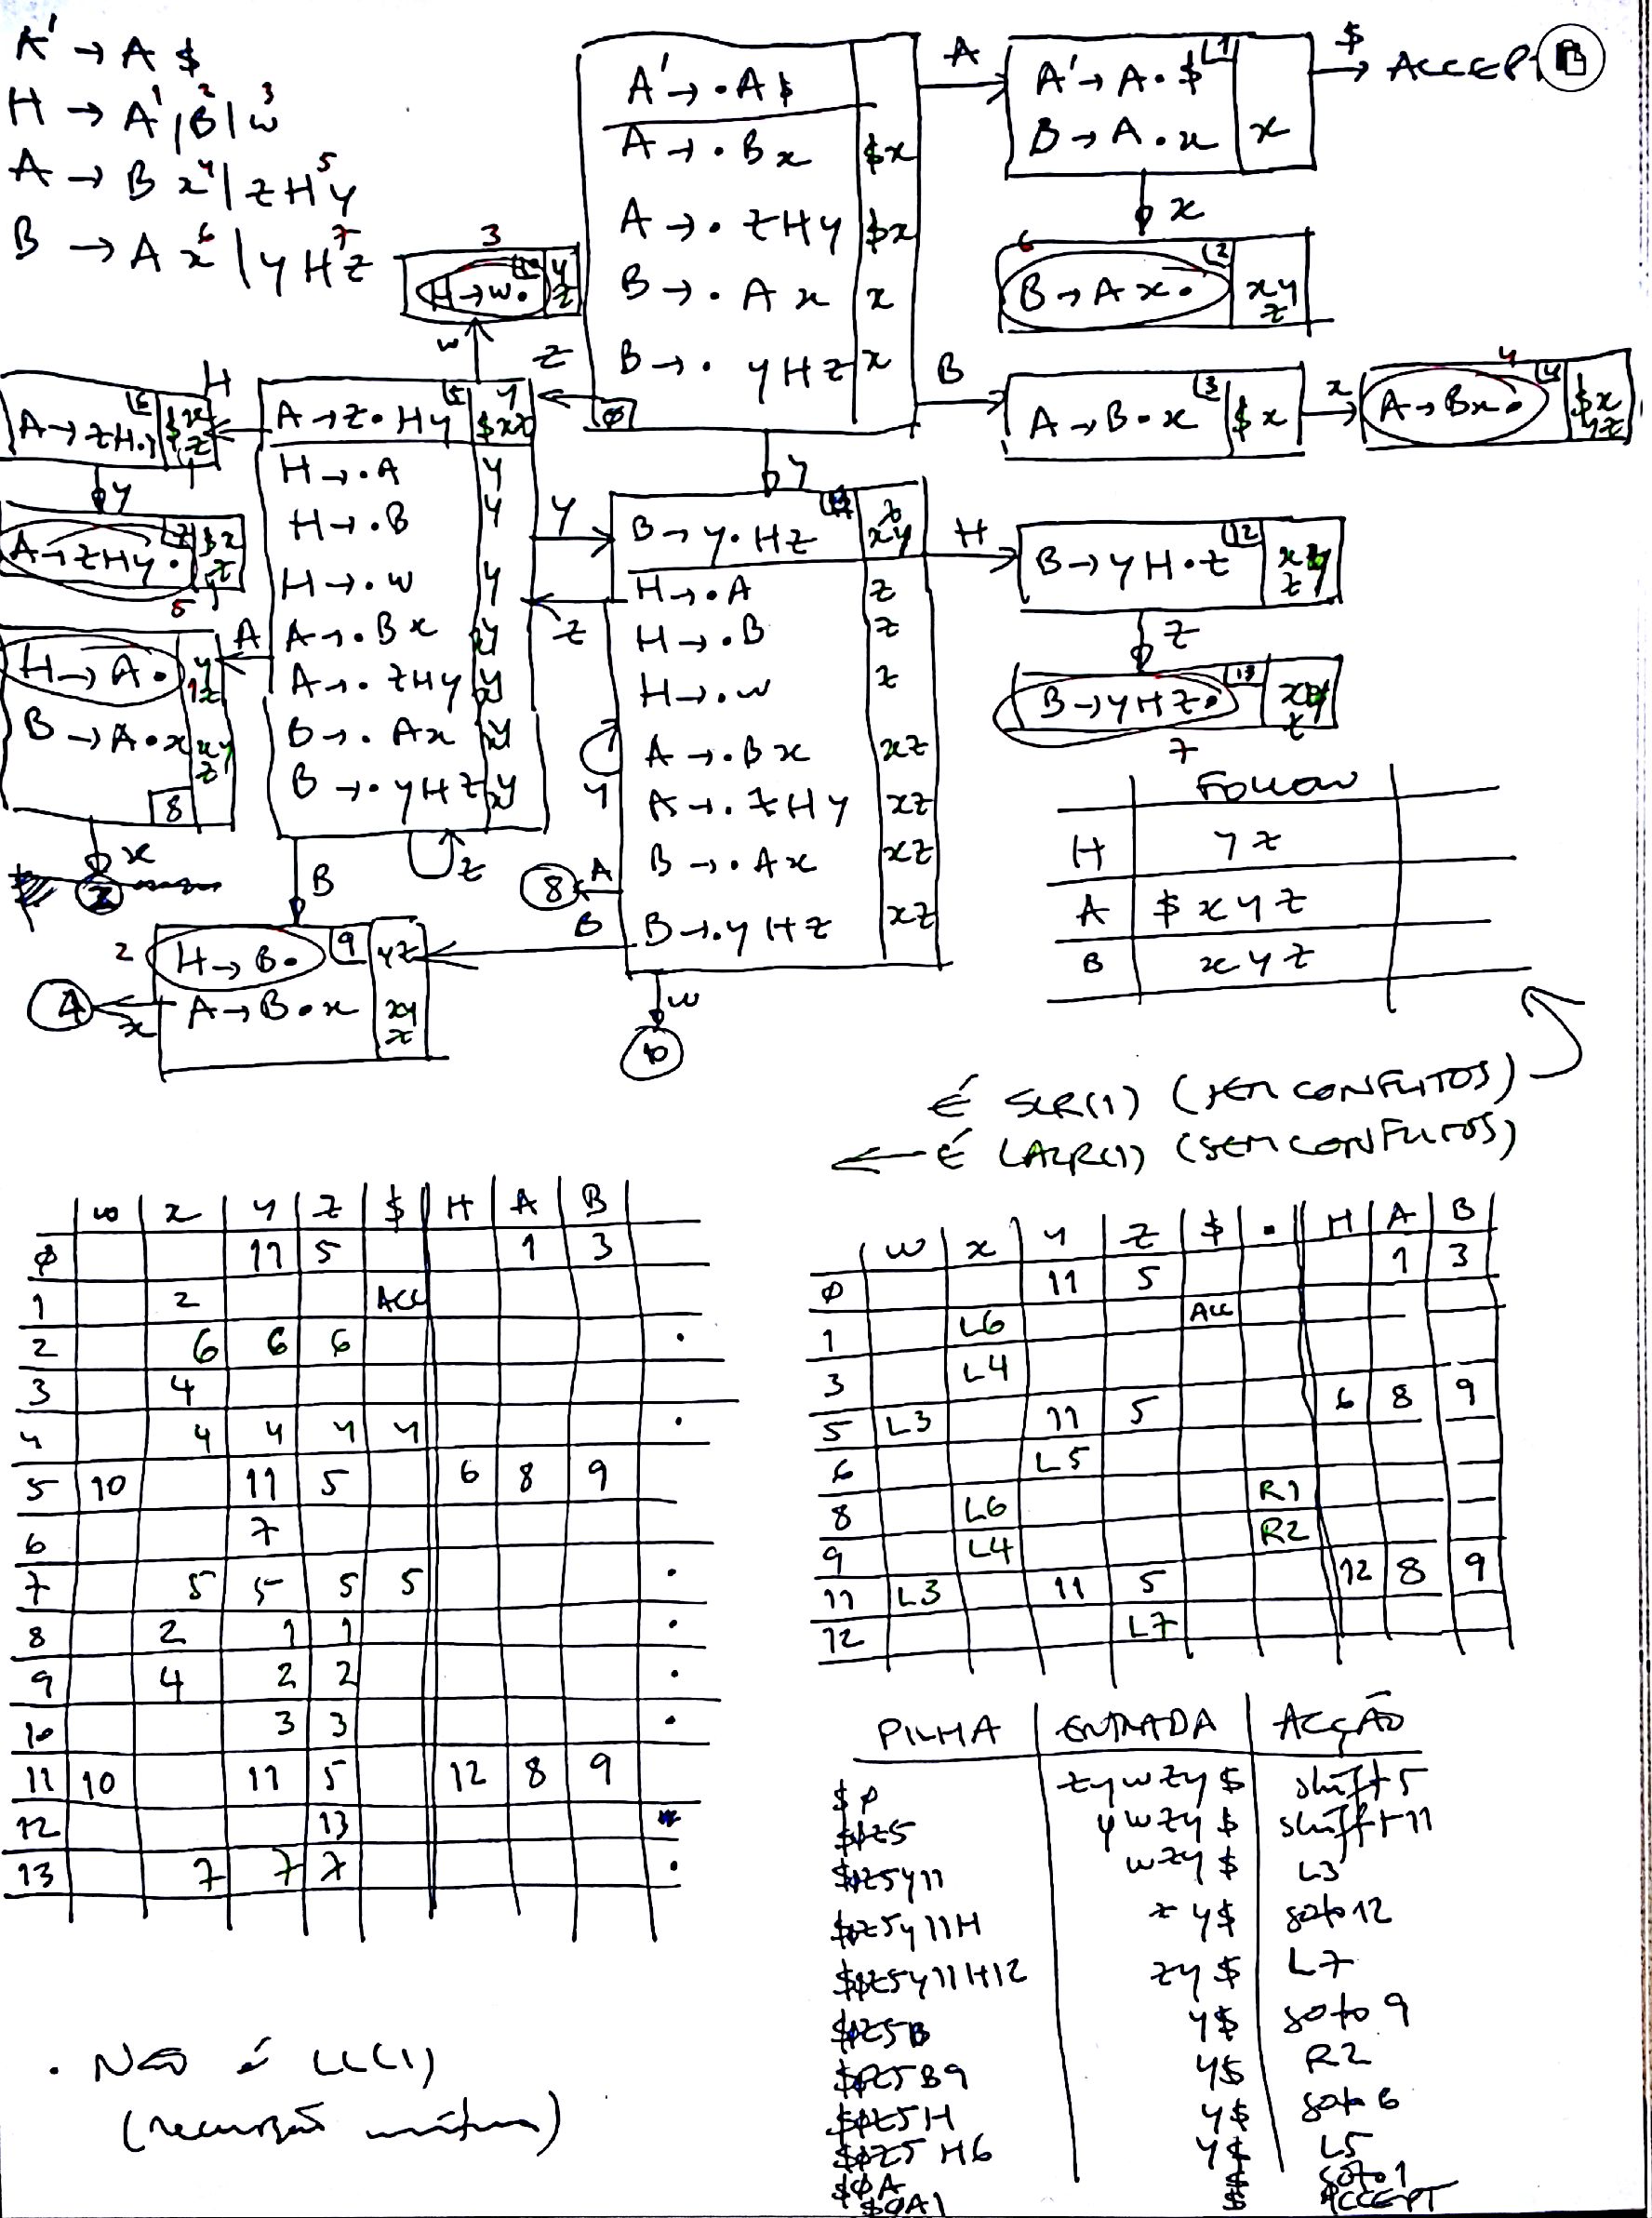 A' → A $
H → A¹ | B² | w³
A → B x⁴ | z H y⁵
B → A x⁶ | y H z⁷
A' → · A $
A → · B x $x
A → · z H y $x
B → · A x x
B → · y H z x
Ø
A
A' → A · $ 1
B → A · x x
$
→ ACCEPT
x
6
B → A x · 2 x y z
B
A → B · x 3 $ x
x
4
A → B x · 4 $ x y z
3
H → w · 10 y z
w
z
H
A → z H · y 6 $ x y z
y
A → z H y · 7 $ x y z
5
A → z · H y 5 $ x y z
H → · A y
H → · B y
H → · w y
A → · B x x y
A → · z H y x y
B → · A x x y
B → · y H z x y
y
z
A
H → A · y z
1
B → A · x x y z
8
x
2
z
B
2
H → B · 9 y z
A → B · x x y z
x
4
y
B → y · H z 11 x y z
H → · A z
H → · B z
H → · w z
A → · B x x z
A → · z H y x z
B → · A x x z
B → · y H z x z
y
A
8
B
w
10
H
B → y H · z 12 x y z
z
B → y H z · 13 x y z
7
Follow
H y z
A $ x y z
B x y z
É SLR(1) (SEM CONFLITOS)
← É LALR(1) (SEM CONFLITOS)
w x y z $ H A B
Ø 11 5 1 3
1 2 ACC
2 6 6 6 ·
3 4
4 4 4 4 4 ·
5 10 11 5 6 8 9
6 7
7 5 5 5 5 ·
8 2 1 1 ·
9 4 2 2 ·
10 3 3 ·
11 10 11 5 12 8 9
12 13
13 7 7 7 ·
w x y z $ · H A B
Ø 11 5 1 3
1 L6 ACC
3 L4
5 L3 11 5 6 8 9
6 L5
8 L6 R1
9 L4 R2
11 L3 11 5 12 8 9
12 L7
PILHA ENTRADA ACÇÃO
$Ø zywzy$ shift 5
$Øz5 ywzy$ shift 11
$Øz5y11 wzy$ L3
$Øz5y11H zy$ goto 12
$Øz5y11H12 zy$ L7
$Øz5B y$ goto 9
$Øz5B9 y$ R2
$Øz5H y$ goto 6
$Øz5H6 y$ L5
$ØA $ goto 1
$ØA1 $ ACCEPT
. NÃO é LL(1)
(recursão mútua)